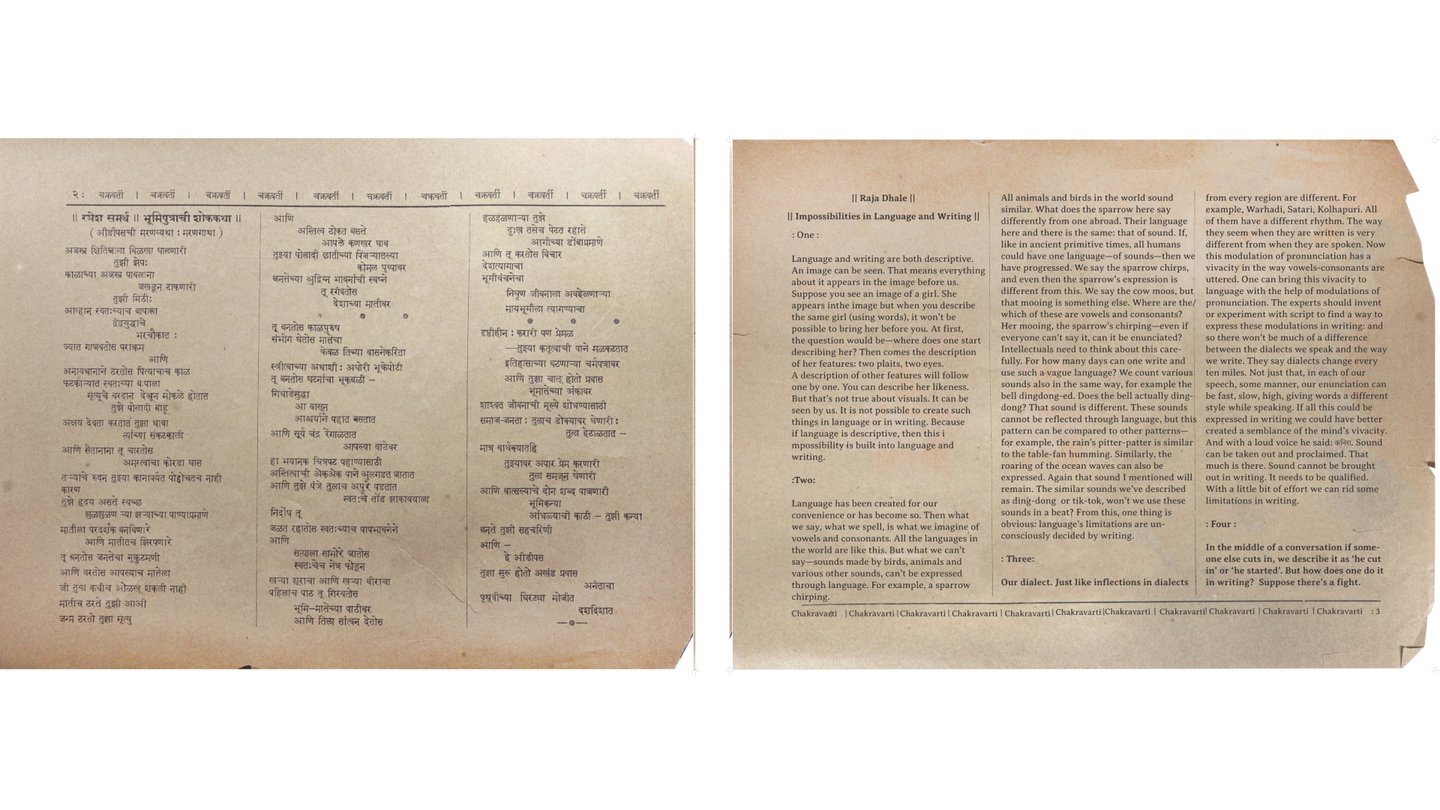 २ : चक्रवर्ती | चक्रवर्ती | चक्रवर्ती | चक्रवर्ती | चक्रवर्ती | चक्रवर्ती | चक्रवर्ती | चक्रवर्ती | चक्रवर्ती | चक्रवर्ती | चक्रवर्ती
॥ रमेश समर्थ ॥ भूमिपुत्राची शोककथा ॥
( ईडीपसची मरणव्यथा : मरणगाथा )
अजस्त्र क्षितिजाला विळखा घालणारी
तुझी झेप:
काळाच्या अजस्त्र पावलांना
जखडून टाकणारी
तुझी मिठी:
आव्हान स्वतःच्याच बापाला
द्वंद्वयुद्धाचे
भरचौकात :
ज्यात गाजवतोस पराक्रम
आणि
अनावधानाने ठरतोस पित्याचाच काळ
फटकाऱ्यात स्वतःच्या बापाला
मृत्यूचे वरदान देखून मोकळे होतात
तुझे पोलादी बाहू
अक्षय देवता करतात तुझा धावा
त्यांच्या संकटकाळी
आणि सैतानाना तू चारतोस
अमरत्वाचा कोरडा घास
ताऱ्यांचे रुदन तुझ्या कानापर्यंत पोहोचतच नाही
कारण
तुझे हृदय असते स्वच्छ
खुळखुळणाऱ्या झऱ्याच्या पाण्याप्रमाणे
मातीला परदर्शक बनविणारे
आणि मातीतच झिरपणारे
तू बनतोस जनतेचा मुकुटमणी
आणि वरतोस आपल्याच मातेला
जी तुला कधीच ओळखू शकली नाही
मातीच ठरते तुझी आई
जन्म ठरतो तुझा मृत्यू
आणि
अस्तित्व ठोकत बसते
आपले कणखर पाय
तुझ्या पोलादी छातीच्या पिंजऱ्यातल्या
कोमल पुष्पावर
जनतेच्या क्षुद्विग्न भावनांची स्वप्ने
तू रंगवतोस
देशाच्या मातीवर
तू बनतोस काळपुरुष
संभोग घेतोस मातेचा
केवळ तिच्या वासनेकरिता
स्त्रीत्वाच्या अधाशी: अघोरी भूकेपोटी
तू बनतोस घटनांचा भूकबळी –
गिधाडेसुद्धा
आ वासून
आश्चर्याने पहात बसतात
आणि सूर्य चंद्र रेंगाळतात
आपल्या वाटेवर
हा भयानक चित्रपट पहाण्यासाठी
अस्तित्वाची एकएक पाने भुलगडत जातात
आणि तुझे पंजे तुलाच अपुरे पडतात
स्वतःचे तोंड झाकावयाला
निर्दोष तू
जळत रहातोस स्वतःच्याच पापभावनेने
आणि
सत्याला सामोरे जातोस
स्वतःचेच नेत्र फोडून
खऱ्या शूराचा आणि खऱ्या वीराचा
पहिलाच पाठ तू गिरवतोस
भूमि–मातेच्या पाठीवर
आणि तिला सांत्वन देतोस
हळहळणाऱ्या तुझे
दुःख तसेच पेटत रहाते
आगीच्या डोंबाप्रमाणे
आणि तू करतोस विचार
देशत्यागाचा
भूमीवंचनेचा
निघृण जीवनाला अवहेलणाऱ्या
मायभूमीला त्यागण्याचा
दृष्टीहीन : करारी पण प्रेमळ
—तुझ्या कतृत्वाची पाने मळकटतात
इतिहासाच्या वठणाऱ्या चर्मपत्रावर
आणि तुझा चालू होतो प्रवास
भूमातेच्या अंकावर
शाश्वत जीवनाची मूल्ये शोधण्यासाठी
समाज-जनता : तुलाच डोक्यावर घेणारी:
तुला हेटाळतात –
मात्र वार्धक्यातही
तुझ्यावर अपार प्रेम करणारी
तुला समजून घेणारी
आणि वात्सल्याचे दोन शब्द पाजणारी
भूमिकन्या
आंधळ्याची काठी – तुझी कन्या
बनते तुझी सहचरिणी
आणि –
हे ईडीपस
तुझा सुरू होतो अखंड प्रवास
अनंताचा
पृथ्वीच्या घिरट्या मोजीत
दशदिशात
|| Raja Dhale ||
|| Impossibilities in Language and Writing ||
: One :
Language and writing are both descriptive.
An image can be seen. That means everything
about it appears in the image before us.
Suppose you see an image of a girl. She
appears inthe image but when you describe
the same girl (using words), it won't be
possible to bring her before you. At first,
the question would be—where does one start
describing her? Then comes the description
of her features: two plaits, two eyes.
A description of other features will follow
one by one. You can describe her likeness.
But that's not true about visuals. It can be
seen by us. It is not possible to create such
things in language or in writing. Because
if language is descriptive, then this i
mpossibility is built into language and
writing.
:Two:
Language has been created for our
convenience or has become so. Then what
we say, what we spell, is what we imagine of
vowels and consonants. All the languages in
the world are like this. But what we can't
say—sounds made by birds, animals and
various other sounds, can't be expressed
through language. For example, a sparrow
chirping.
All animals and birds in the world sound
similar. What does the sparrow here say
differently from one abroad. Their language
here and there is the same: that of sound. If,
like in ancient primitive times, all humans
could have one language—of sounds—then we
have progressed. We say the sparrow chirps,
and even then the sparrow's expression is
different from this. We say the cow moos, but
that mooing is something else. Where are the/
which of these are vowels and consonants?
Her mooing, the sparrow's chirping—even if
everyone can't say it, can it be enunciated?
Intellectuals need to think about this care-
fully. For how many days can one write and
use such a vague language? We count various
sounds also in the same way, for example the
bell dingdong-ed. Does the bell actually ding-
dong? That sound is different. These sounds
cannot be reflected through language, but this
pattern can be compared to other patterns—
for example, the rain's pitter-patter is similar
to the table-fan humming. Similarly, the
roaring of the ocean waves can also be
expressed. Again that sound I mentioned will
remain. The similar sounds we've described
as ding-dong or tik-tok, won't we use these
sounds in a beat? From this, one thing is
obvious: language's limitations are un-
consciously decided by writing.
: Three:
Our dialect. Just like inflections in dialects
from every region are different. For
example, Warhadi, Satari, Kolhapuri. All
of them have a different rhythm. The way
they seem when they are written is very
different from when they are spoken. Now
this modulation of pronunciation has a
vivacity in the way vowels-consonants are
uttered. One can bring this vivacity to
language with the help of modulations of
pronunciation. The experts should invent
or experiment with script to find a way to
express these modulations in writing: and
so there won't be much of a difference
between the dialects we speak and the way
we write. They say dialects change every
ten miles. Not just that, in each of our
speech, some manner, our enunciation can
be fast, slow, high, giving words a different
style while speaking. If all this could be
expressed in writing we could have better
created a semblance of the mind's vivacity.
And with a loud voice he said: Sound
can be taken out and proclaimed. That
much is there. Sound cannot be brought
out in writing. It needs to be qualified.
With a little bit of effort we can rid some
limitations in writing.
: Four :
In the middle of a conversation if some-
one else cuts in, we describe it as 'he cut
in' or 'he started'. But how does one do it
in writing? Suppose there's a fight.
Chakravarti | Chakravarti | Chakravarti | Chakravarti | Chakravarti | Chakravarti | Chakravarti | Chakravarti | Chakravarti | Chakravarti | Chakravarti : 3